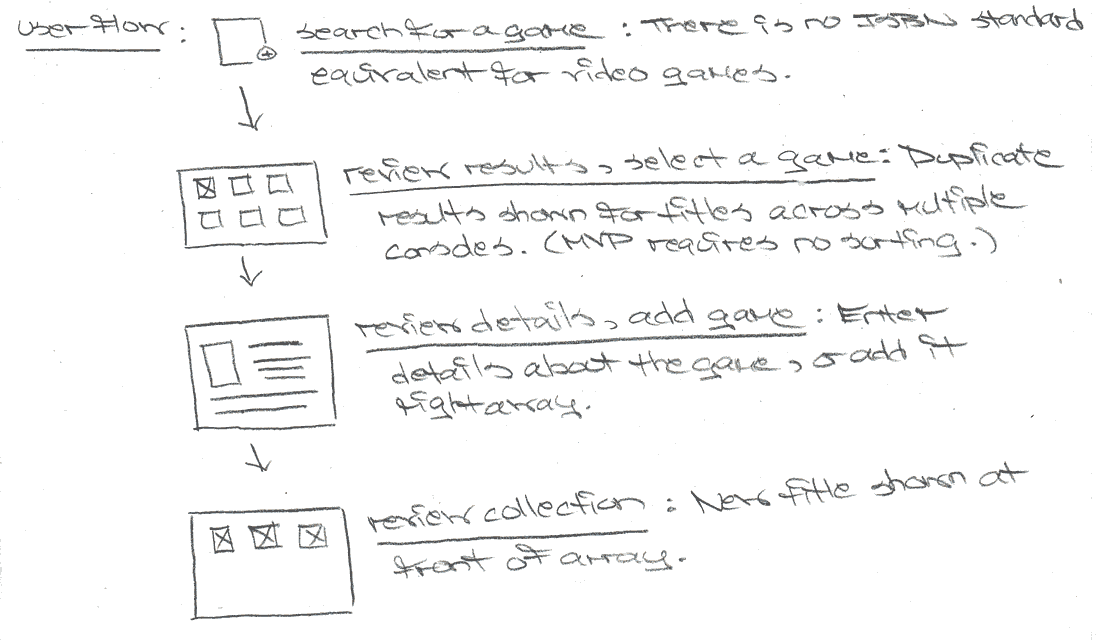 user flow: search for a game: There is no ISBN standard
equivalent for video games.
review results, select a game: Duplicate
results shown for titles across multiple
consoles. (MVP requires no sorting.)
review details, add game: Enter
details about the game, or add it
right array.
review collection: New title shown at
front of array.